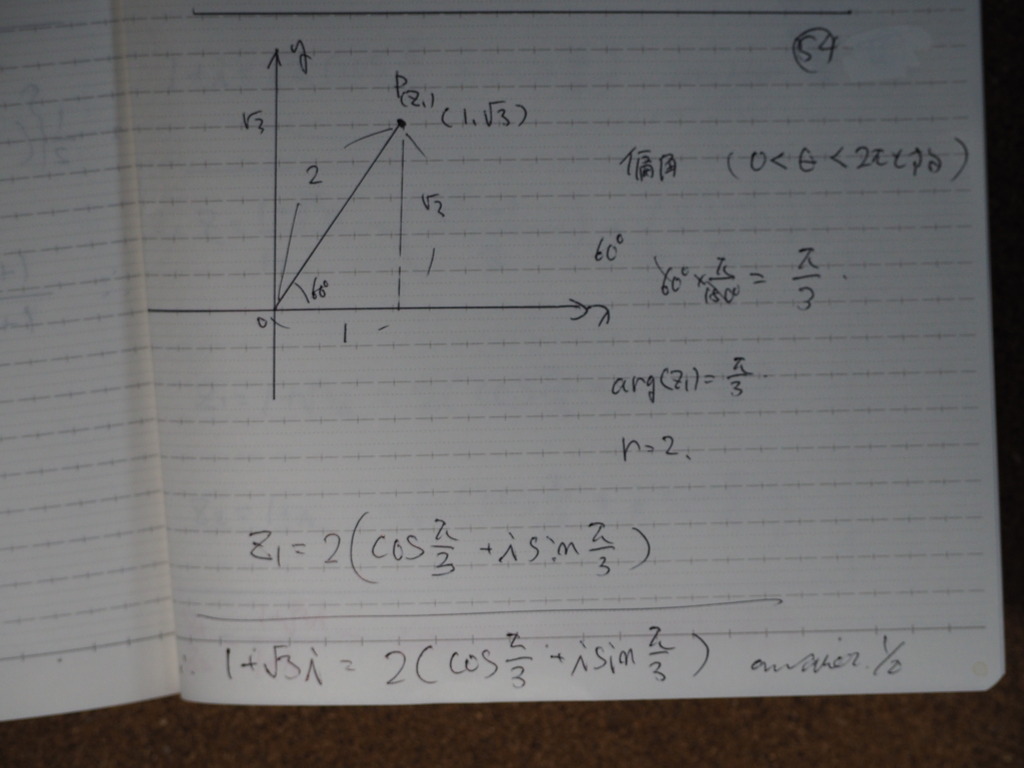 54
y
P(z₁)
(1, √3)
√3
2
√3
60°
0
1
x
偏角 (0<θ<2πとする)
60°
60° × π/180° = π/3.
arg(z₁) = π/3.
r=2.
z₁ = 2(cos π/3 + i sin π/3)
∴ 1+√3i = 2(cos π/3 + i sin π/3) answer.